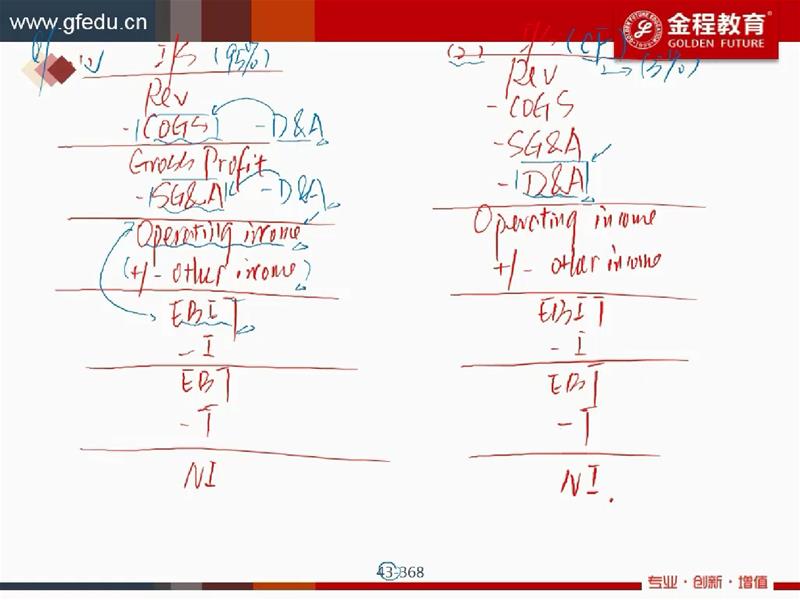 www.gfedu.cn
金程教育
GOLDEN FUTURE
(1) I/S (95%)
Rev
- COGS - D&A
Gross Profit
- SG&A - D&A
Operating income
(+/- other income)
EBIT
- I
EBT
- T
NI
(2) I/S (CF) (5%)
Rev
- COGS
- SG&A
- D&A
Operating income
+/- other income
EBIT
- I
EBT
- T
NI.
43-368
专业·创新·增值